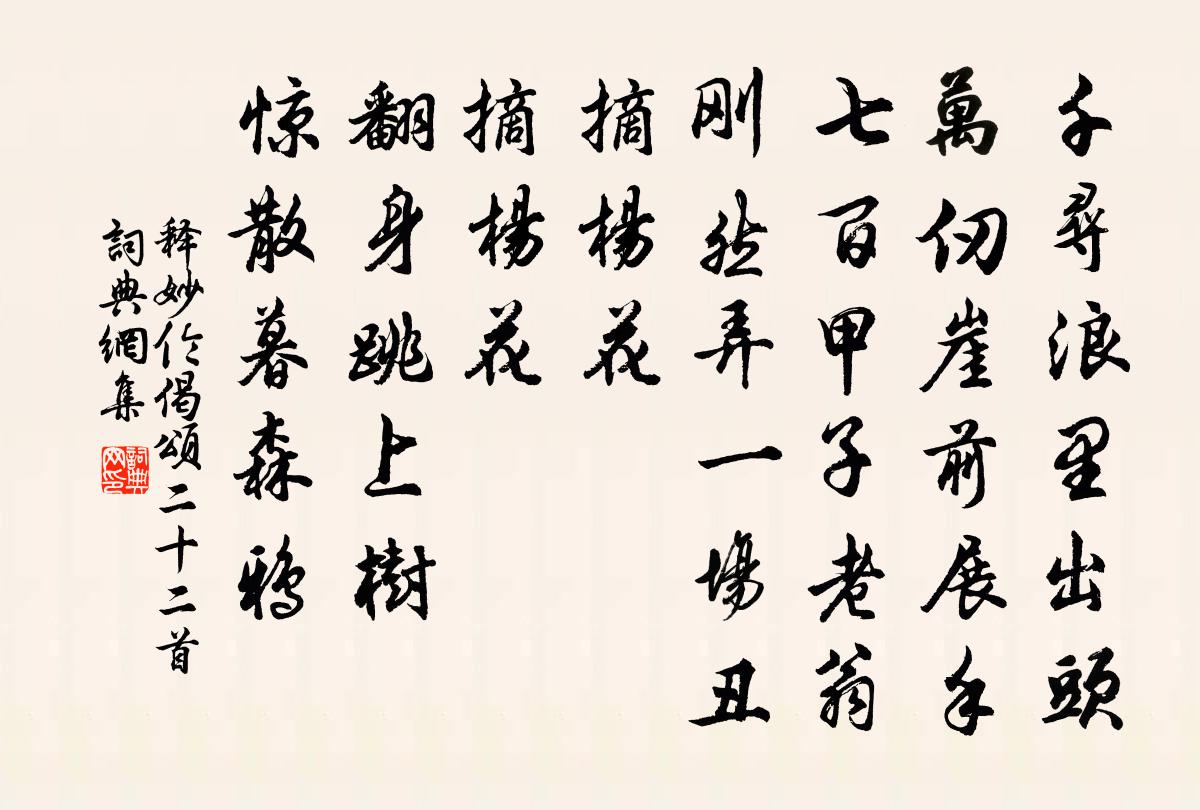 千尋浪里出頭
萬仞崖前展手
七百甲子老翁
刚然弄一場丑
摘楊花
摘楊花
翻身跳上樹
惊散暮森鴉
释妙伦偈頌二十二首
詞典網集
詞典网印